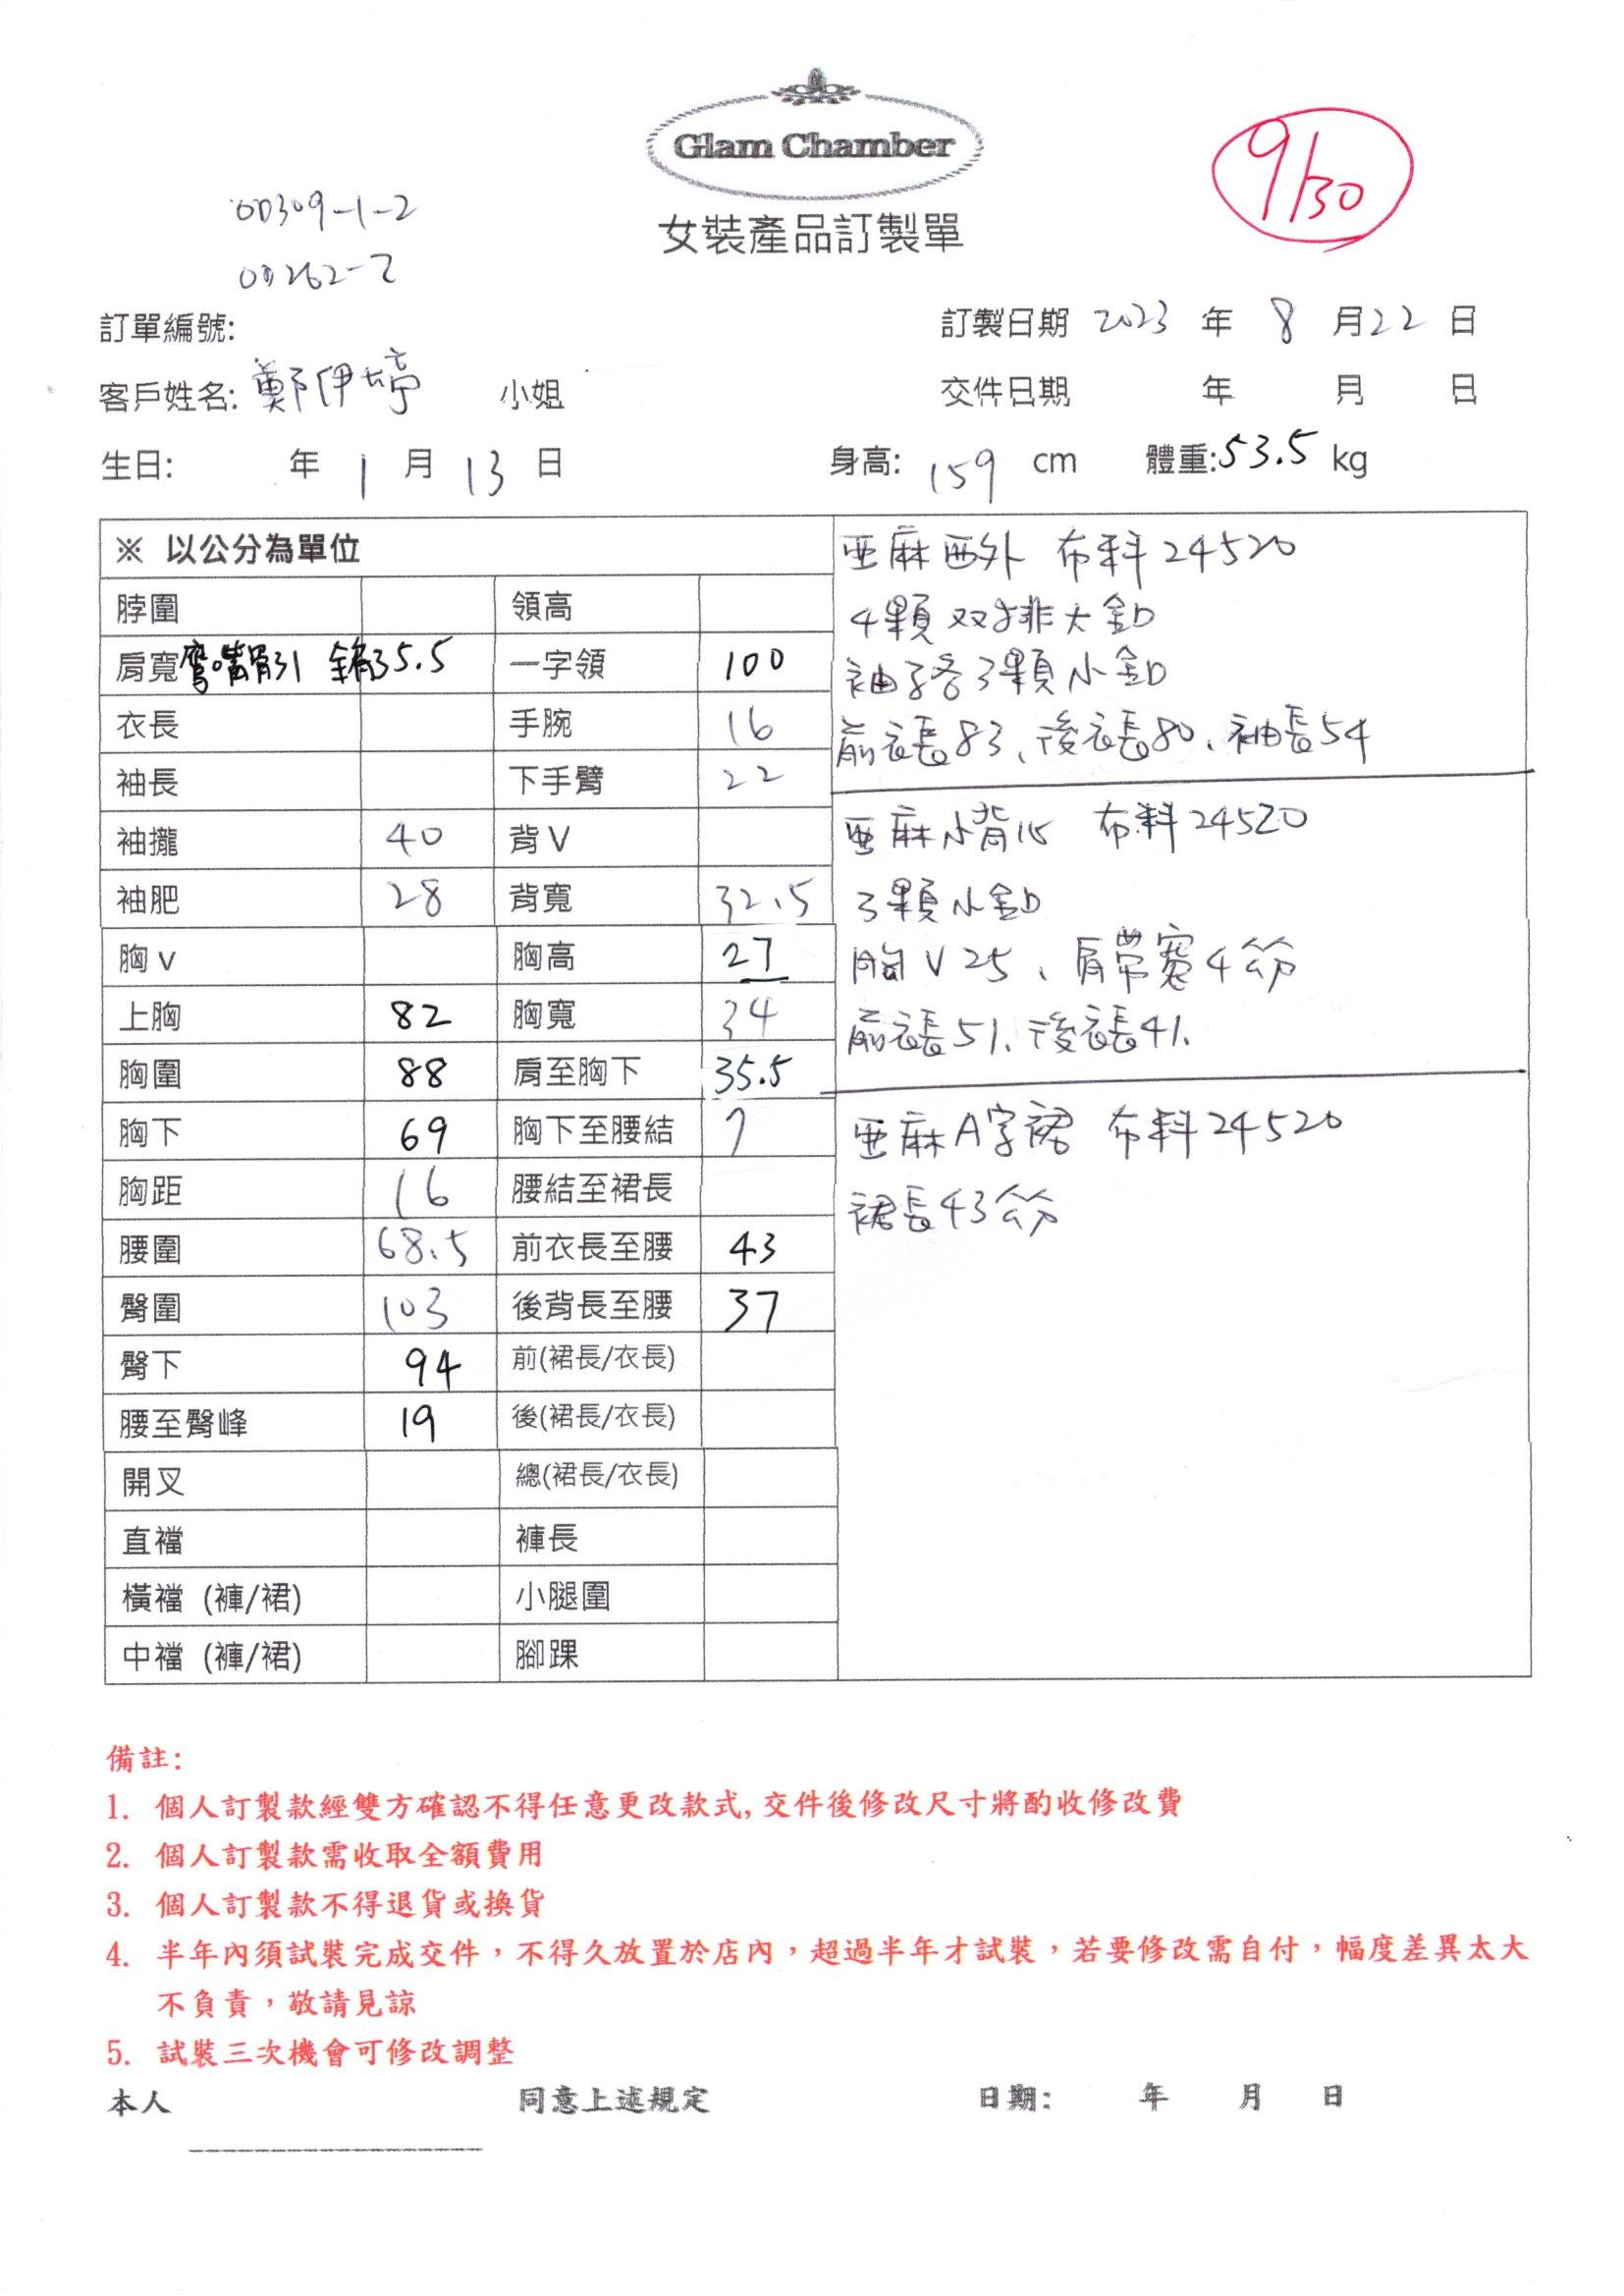 Glam Chamber
9/30
女裝產品訂製單
00309-1-2
00262-2
訂單編號:
訂製日期 2023 年 8 月 22 日
客戶姓名: 鄭伊婷 小姐
交件日期 年 月 日
生日: 年 1 月 13 日
身高: 159 cm 體重:53.5 kg
※ 以公分為單位
脖圍 領高
肩寬 31 35.5 一字領 100
衣長 手腕 16
袖長 下手臂 22
袖攏 40 背V
袖肥 28 背寬 32.5
胸v 胸高 27
上胸 82 胸寬 34
胸圍 88 肩至胸下 35.5
胸下 69 胸下至腰結 7
胸距 16 腰結至裙長
腰圍 68.5 前衣長至腰 43
臀圍 103 後背長至腰 37
臀下 94 前(裙長/衣長)
腰至臀峰 19 後(裙長/衣長)
開叉 總(裙長/衣長)
直襠 褲長
橫襠 (褲/裙) 小腿圍
中襠 (褲/裙) 腳踝
亜麻西外 布料24520
4顆双排大釦
袖子各3顆小釦
前衣長83、後衣長80、袖長54
亜麻小背心 布料24520
3顆小釦
胸V25、肩帶寬4公分
前衣長51、後衣長41、
亜麻A字裙 布料24520
裙長43公分
備註:
1. 個人訂製款經雙方確認不得任意更改款式,交件後修改尺寸將酌收修改費
2. 個人訂製款需收取全額費用
3. 個人訂製款不得退貨或換貨
4. 半年內須試裝完成交件,不得久放置於店內,超過半年才試裝,若要修改需自付,幅度差異太大
不負責,敬請見諒
5. 試裝三次機會可修改調整
本人 同意上述規定 日期: 年 月 日